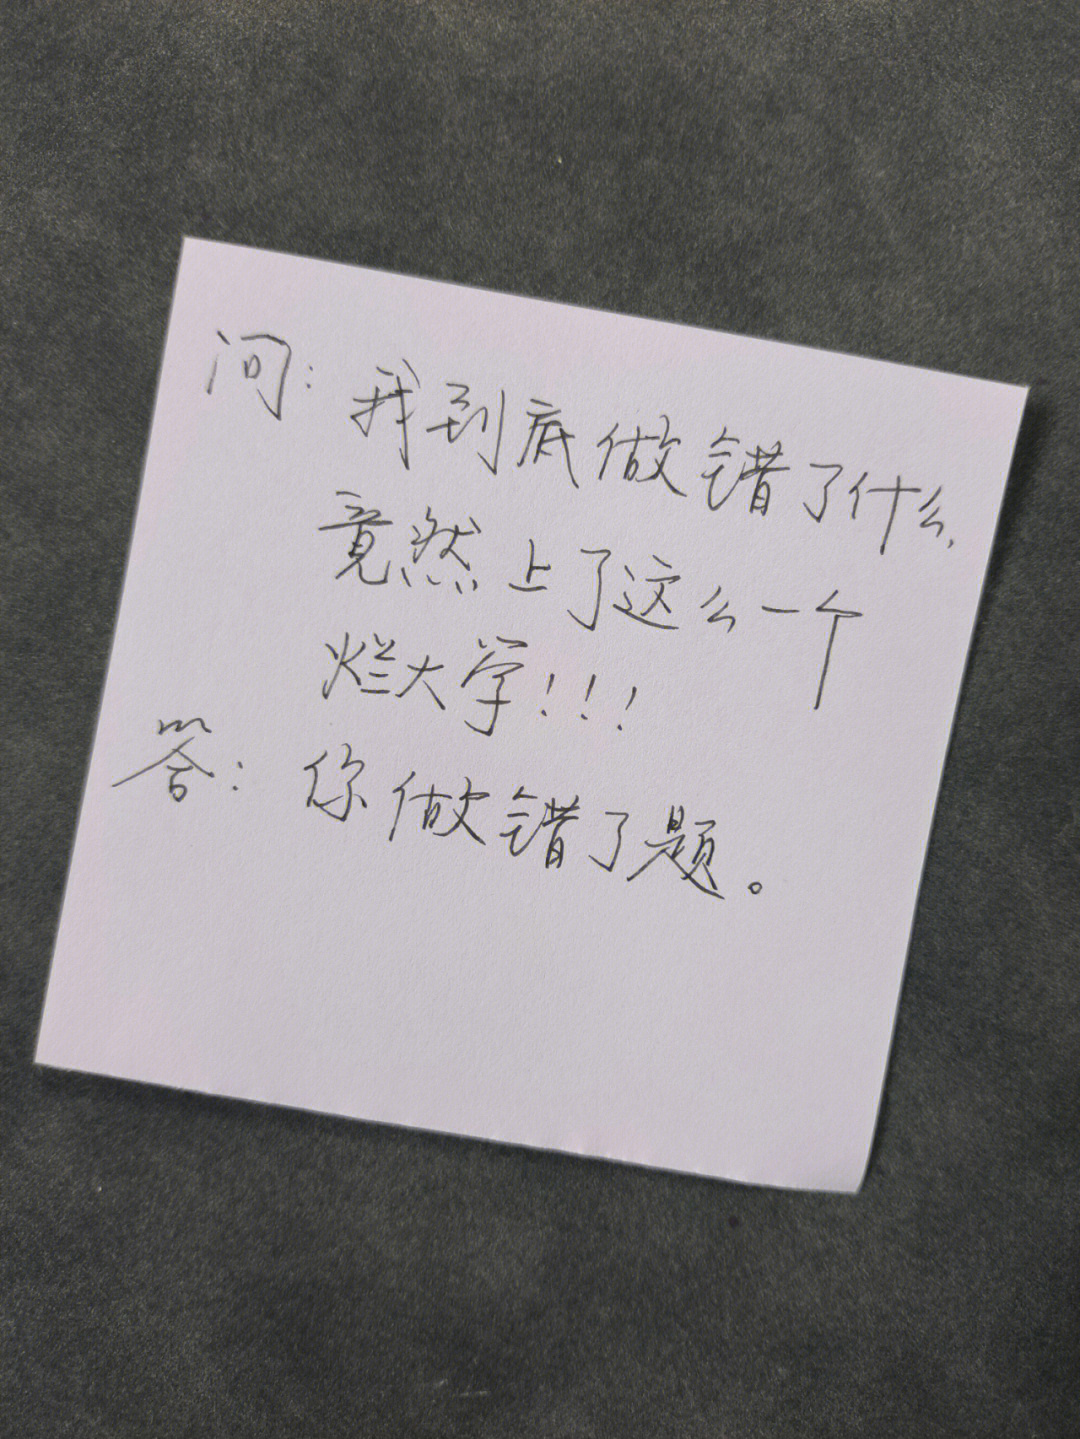 问：我到底做错了什么，
竟然上了这么一个
烂大学！！！
答：你做错了题。